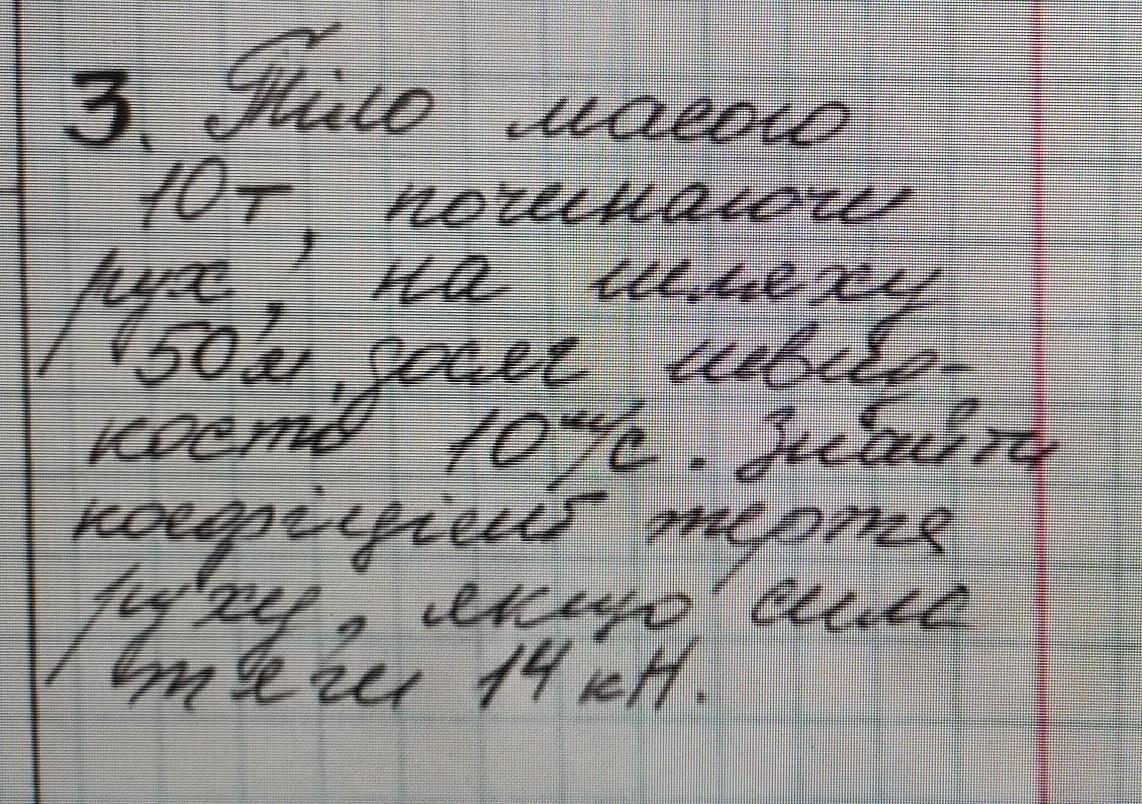 3. Тіло масою
10т, починаючи
рух, на шляху
50м, досяг швид-
кості 10 м/с. Знайти
коефіцієнт тертя
руху, якщо сила
тяги 14 кН.